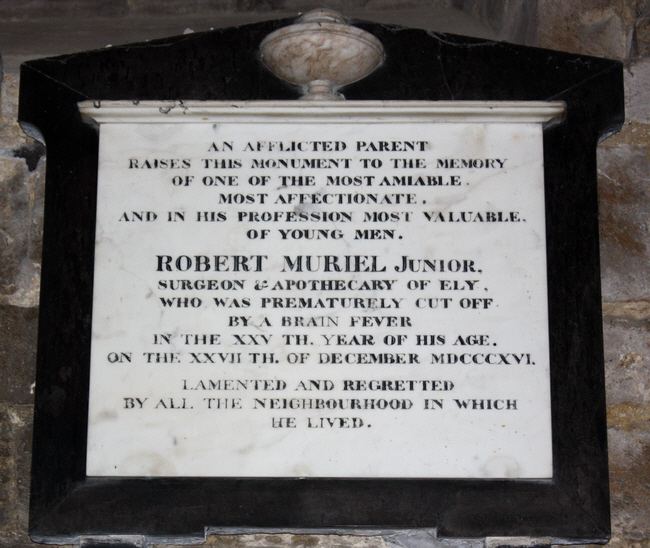 AN AFFLICTED PARENT
RAISES THIS MONUMENT TO THE MEMORY
OF ONE OF THE MOST AMIABLE.
MOST AFFECTIONATE.
AND IN HIS PROFESSION MOST VALUABLE.
OF YOUNG MEN.
ROBERT MURIEL JUNIOR.
SURGEON & APOTHECARY OF ELY,
WHO WAS PREMATURELY CUT OFF
BY A BRAIN FEVER
IN THE XXV TH. YEAR OF HIS AGE.
ON THE XXVII TH. OF DECEMBER MDCCCXVI.
LAMENTED AND REGRETTED
BY ALL THE NEIGHBOURHOOD IN WHICH
HE LIVED.